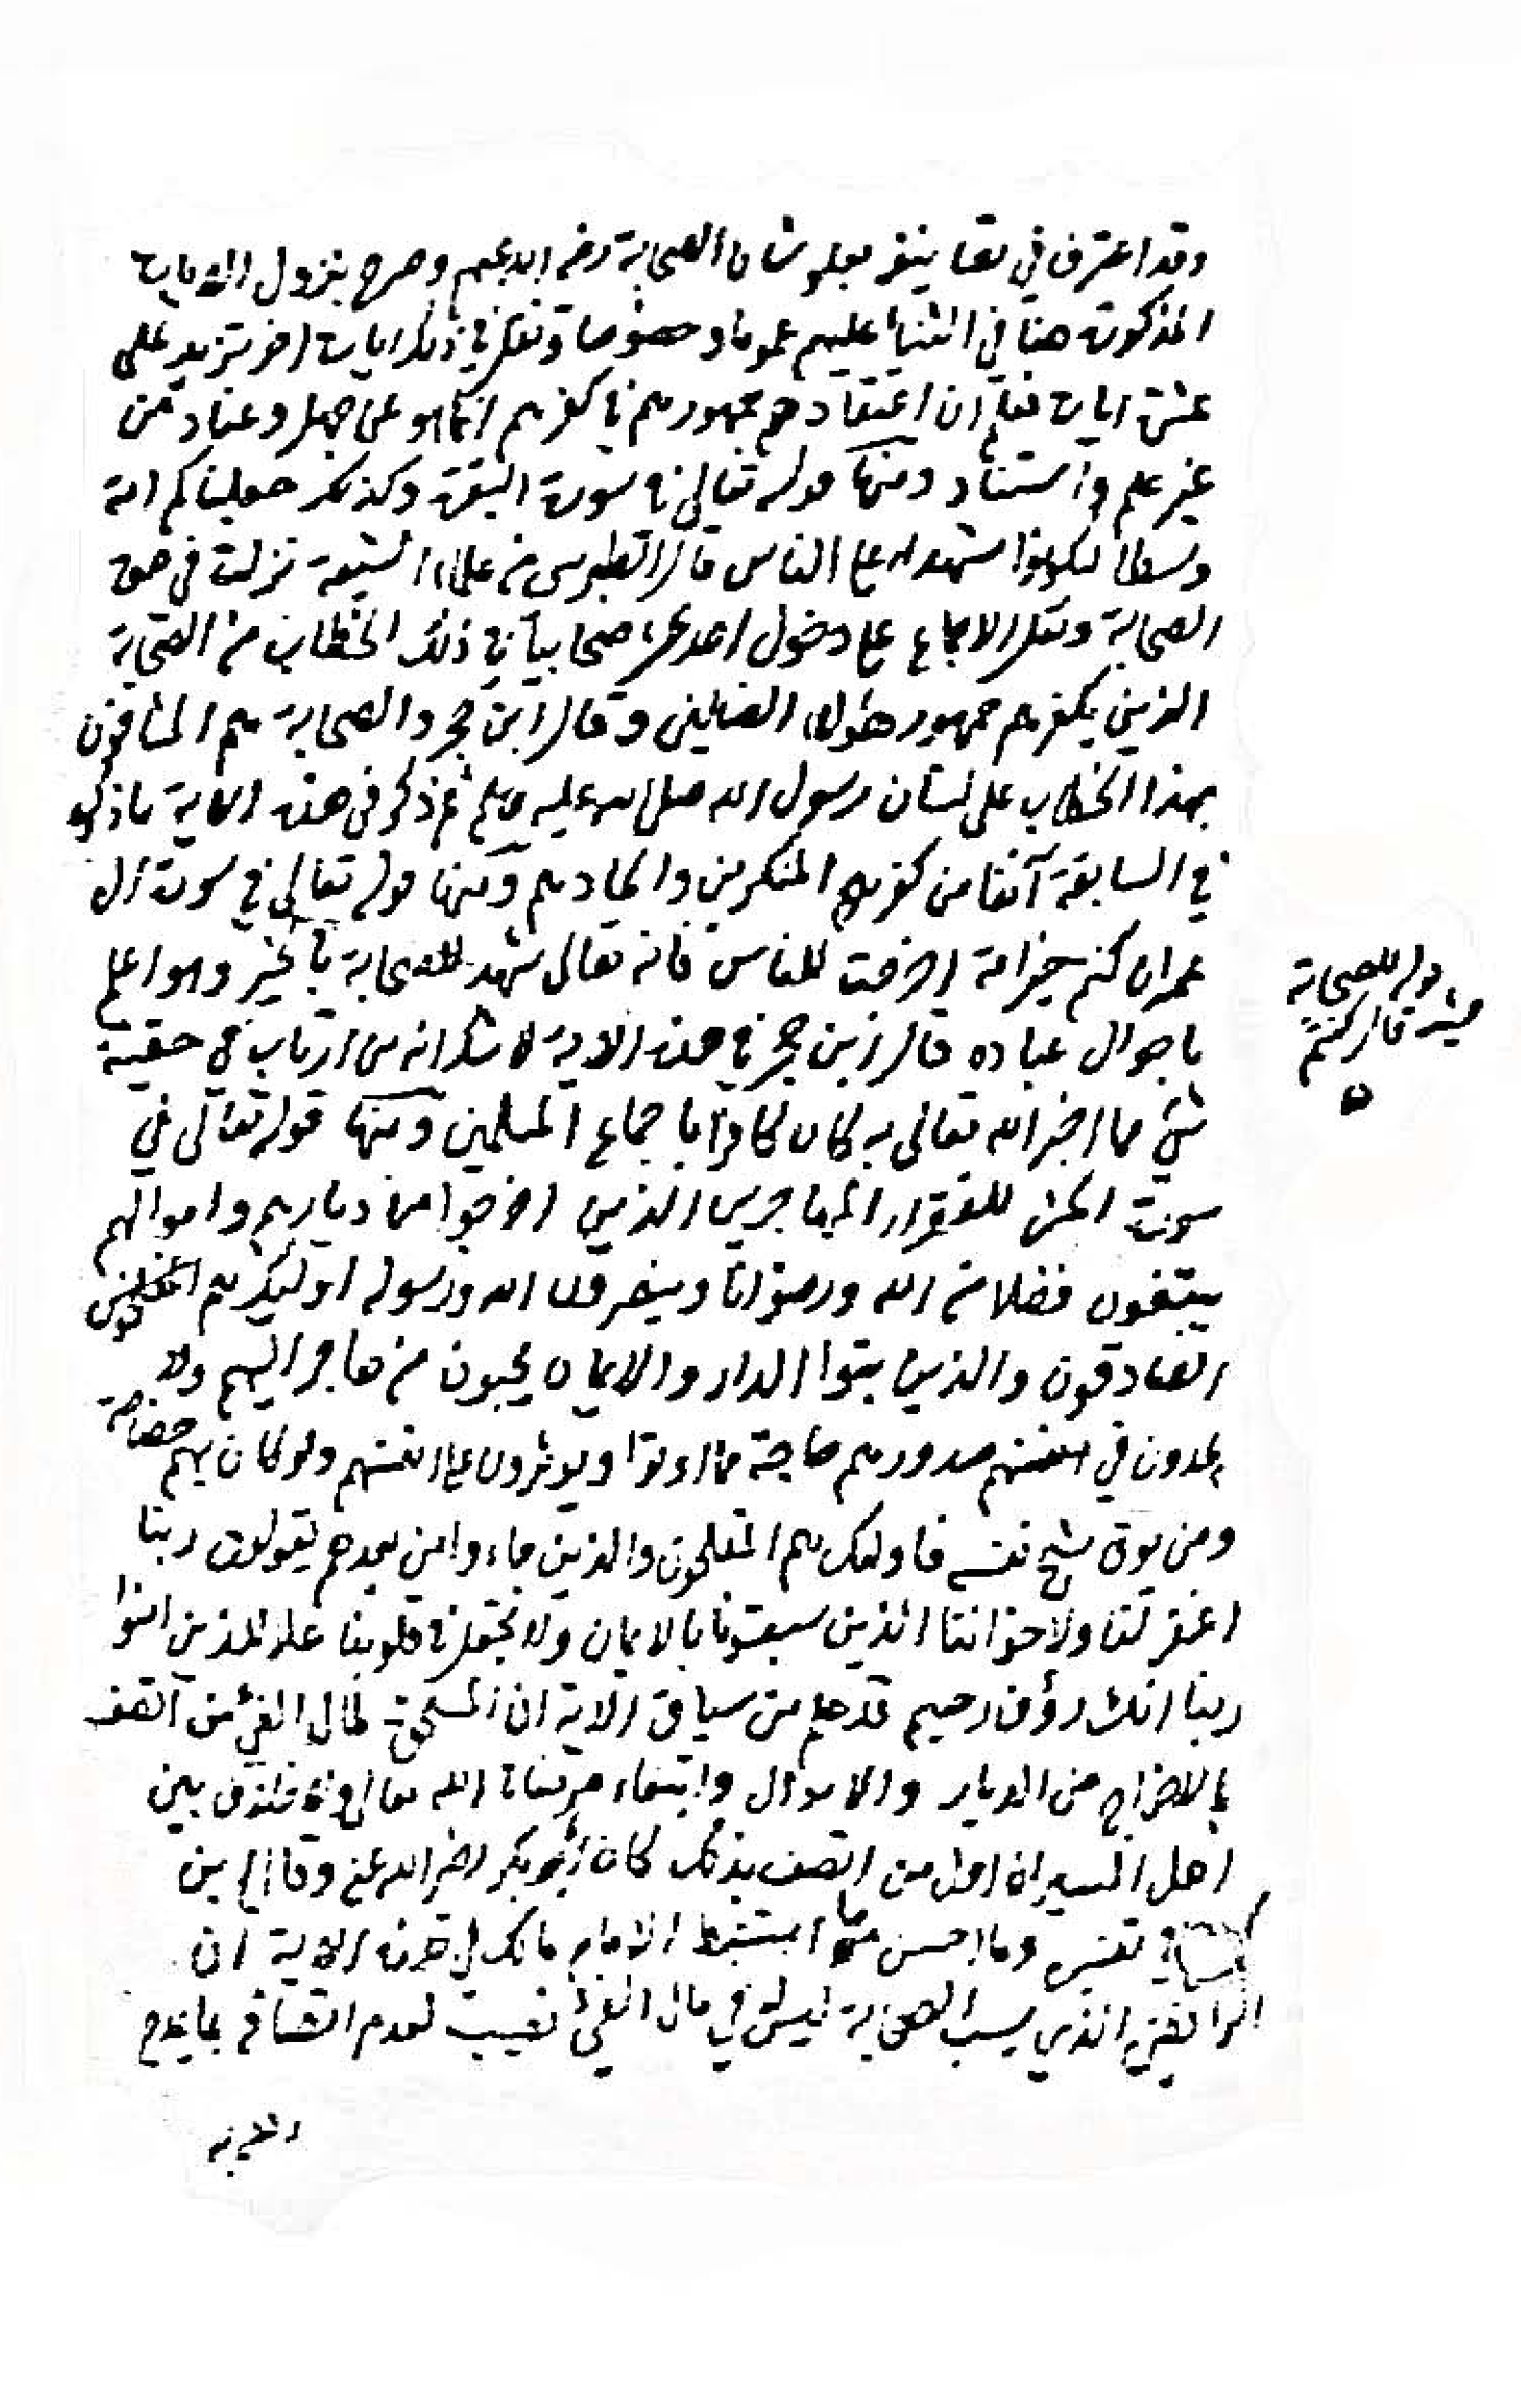 وقد اعترف في تفاسيره بعلو شان الصحابة رضي الله عنهم وصرح بنزول الايات
المذكورة هنا في الثناء عليهم عموما وخصوصا ونقل في ذلك ايات اخر تزيد على
عشر ايات فعلم ان اعتقادهم جمهورهم في كفرهم انما هو على جهل وعناد من
غير علم واستناد ومنها قوله تعالى في سورة البقرة وكذلك جعلناكم امة
وسطا لتكونوا شهداء على الناس قال الطبرسي من علماء الشيعة نزلت في حق
الصحابة ونقل الاجماع على دخول احد عشر صحابيا في ذلك الخطاب من الصحابة
الذين يكفرهم جمهور هؤلاء الضالين وقال ابن حجر والصحابة هم المشافهون
بهذا الخطاب على لسان رسول الله صلى الله عليه وسلم ثم ذكر في هذه الاية ما ذكره
في السابقة آنفا من كفر المنكرين والحادهم ومنها قوله تعالى في سورة ال
عمران كنتم خير امة اخرجت للناس فانه تعالى شهد للصحابة بالخير وهو اعلم
باحوال عباده قال ابن حجر في هذه الاية لا شك انه من ارتاب في حقية
شيء مما اخبر الله تعالى به كان كافرا باجماع المسلمين ومنها قوله تعالى في
سورة الحشر للفقراء المهاجرين الذين اخرجوا من ديارهم واموالهم
يبتغون فضلا من الله ورضوانا وينصرون الله ورسوله اولئك هم
الصادقون والذين تبوا الدار والايمان يحبون من هاجر اليهم ولا
يجدون في صدورهم حاجة مما اوتوا ويوثرون على انفسهم ولو كان بهم خصاصة
ومن يوق شح نفسه فاولئك هم المفلحون والذين جاءوا من بعدهم يقولون ربنا
اغفر لنا ولاخواننا الذين سبقونا بالايمان ولا تجعل في قلوبنا غلا للذين امنوا
ربنا انك رؤف رحيم قد علم من سياق الاية ان المستحق لمال الفيء من اتصف
بالاخراج من الديار والاموال وابتغاء مرضات الله تعالى ولا خلاف بين
اهل السير ان اول من اتصف بذلك كان ابو بكر رضي الله عنه وقال ابن
كثير في تفسيره وما احسن ما استنبط الامام مالك من هذه الاية ان
الرافضي الذي يسب الصحابة ليس له في مال الفيء نصيب لعدم اتصافه بما مدح
الله به
وله للصحابة
حيث قال كنتم